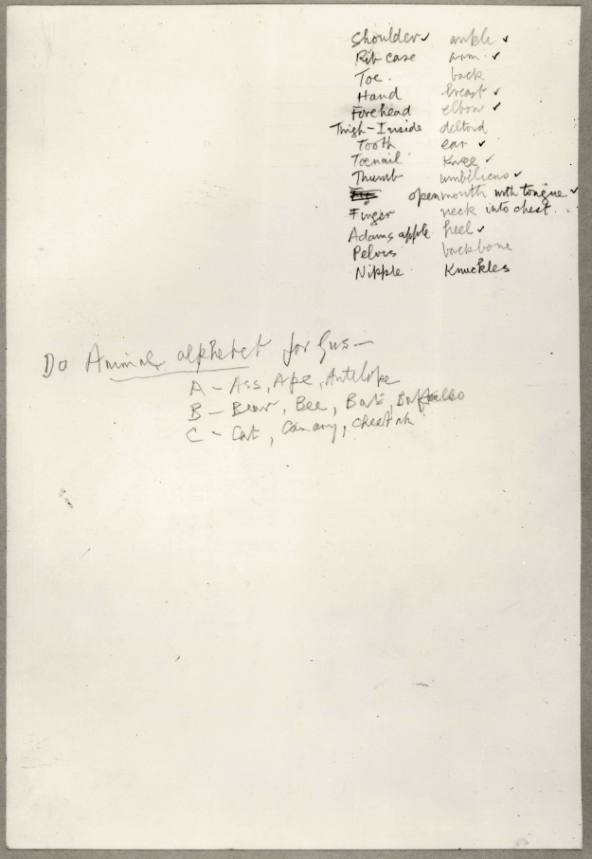 Shoulder ✓ ankle ✓
Rib case arm ✓
Toe. back
Hand breast ✓
Forehead elbow ✓
Thigh-Inside deltoid
Tooth ear ✓
Toenail Knee ✓
Thumb umbilicus ✓
open mouth with tongue ✓
Finger neck into chest...
Adams apple heel ✓
Pelvis backbone
Nipple Knuckles
Do Animal alphabet for Gus—
A - Ass, Ape, Antelope
B - Bear, Bee, Bat, Buffalo
C - Cat, Canary, Cheetah